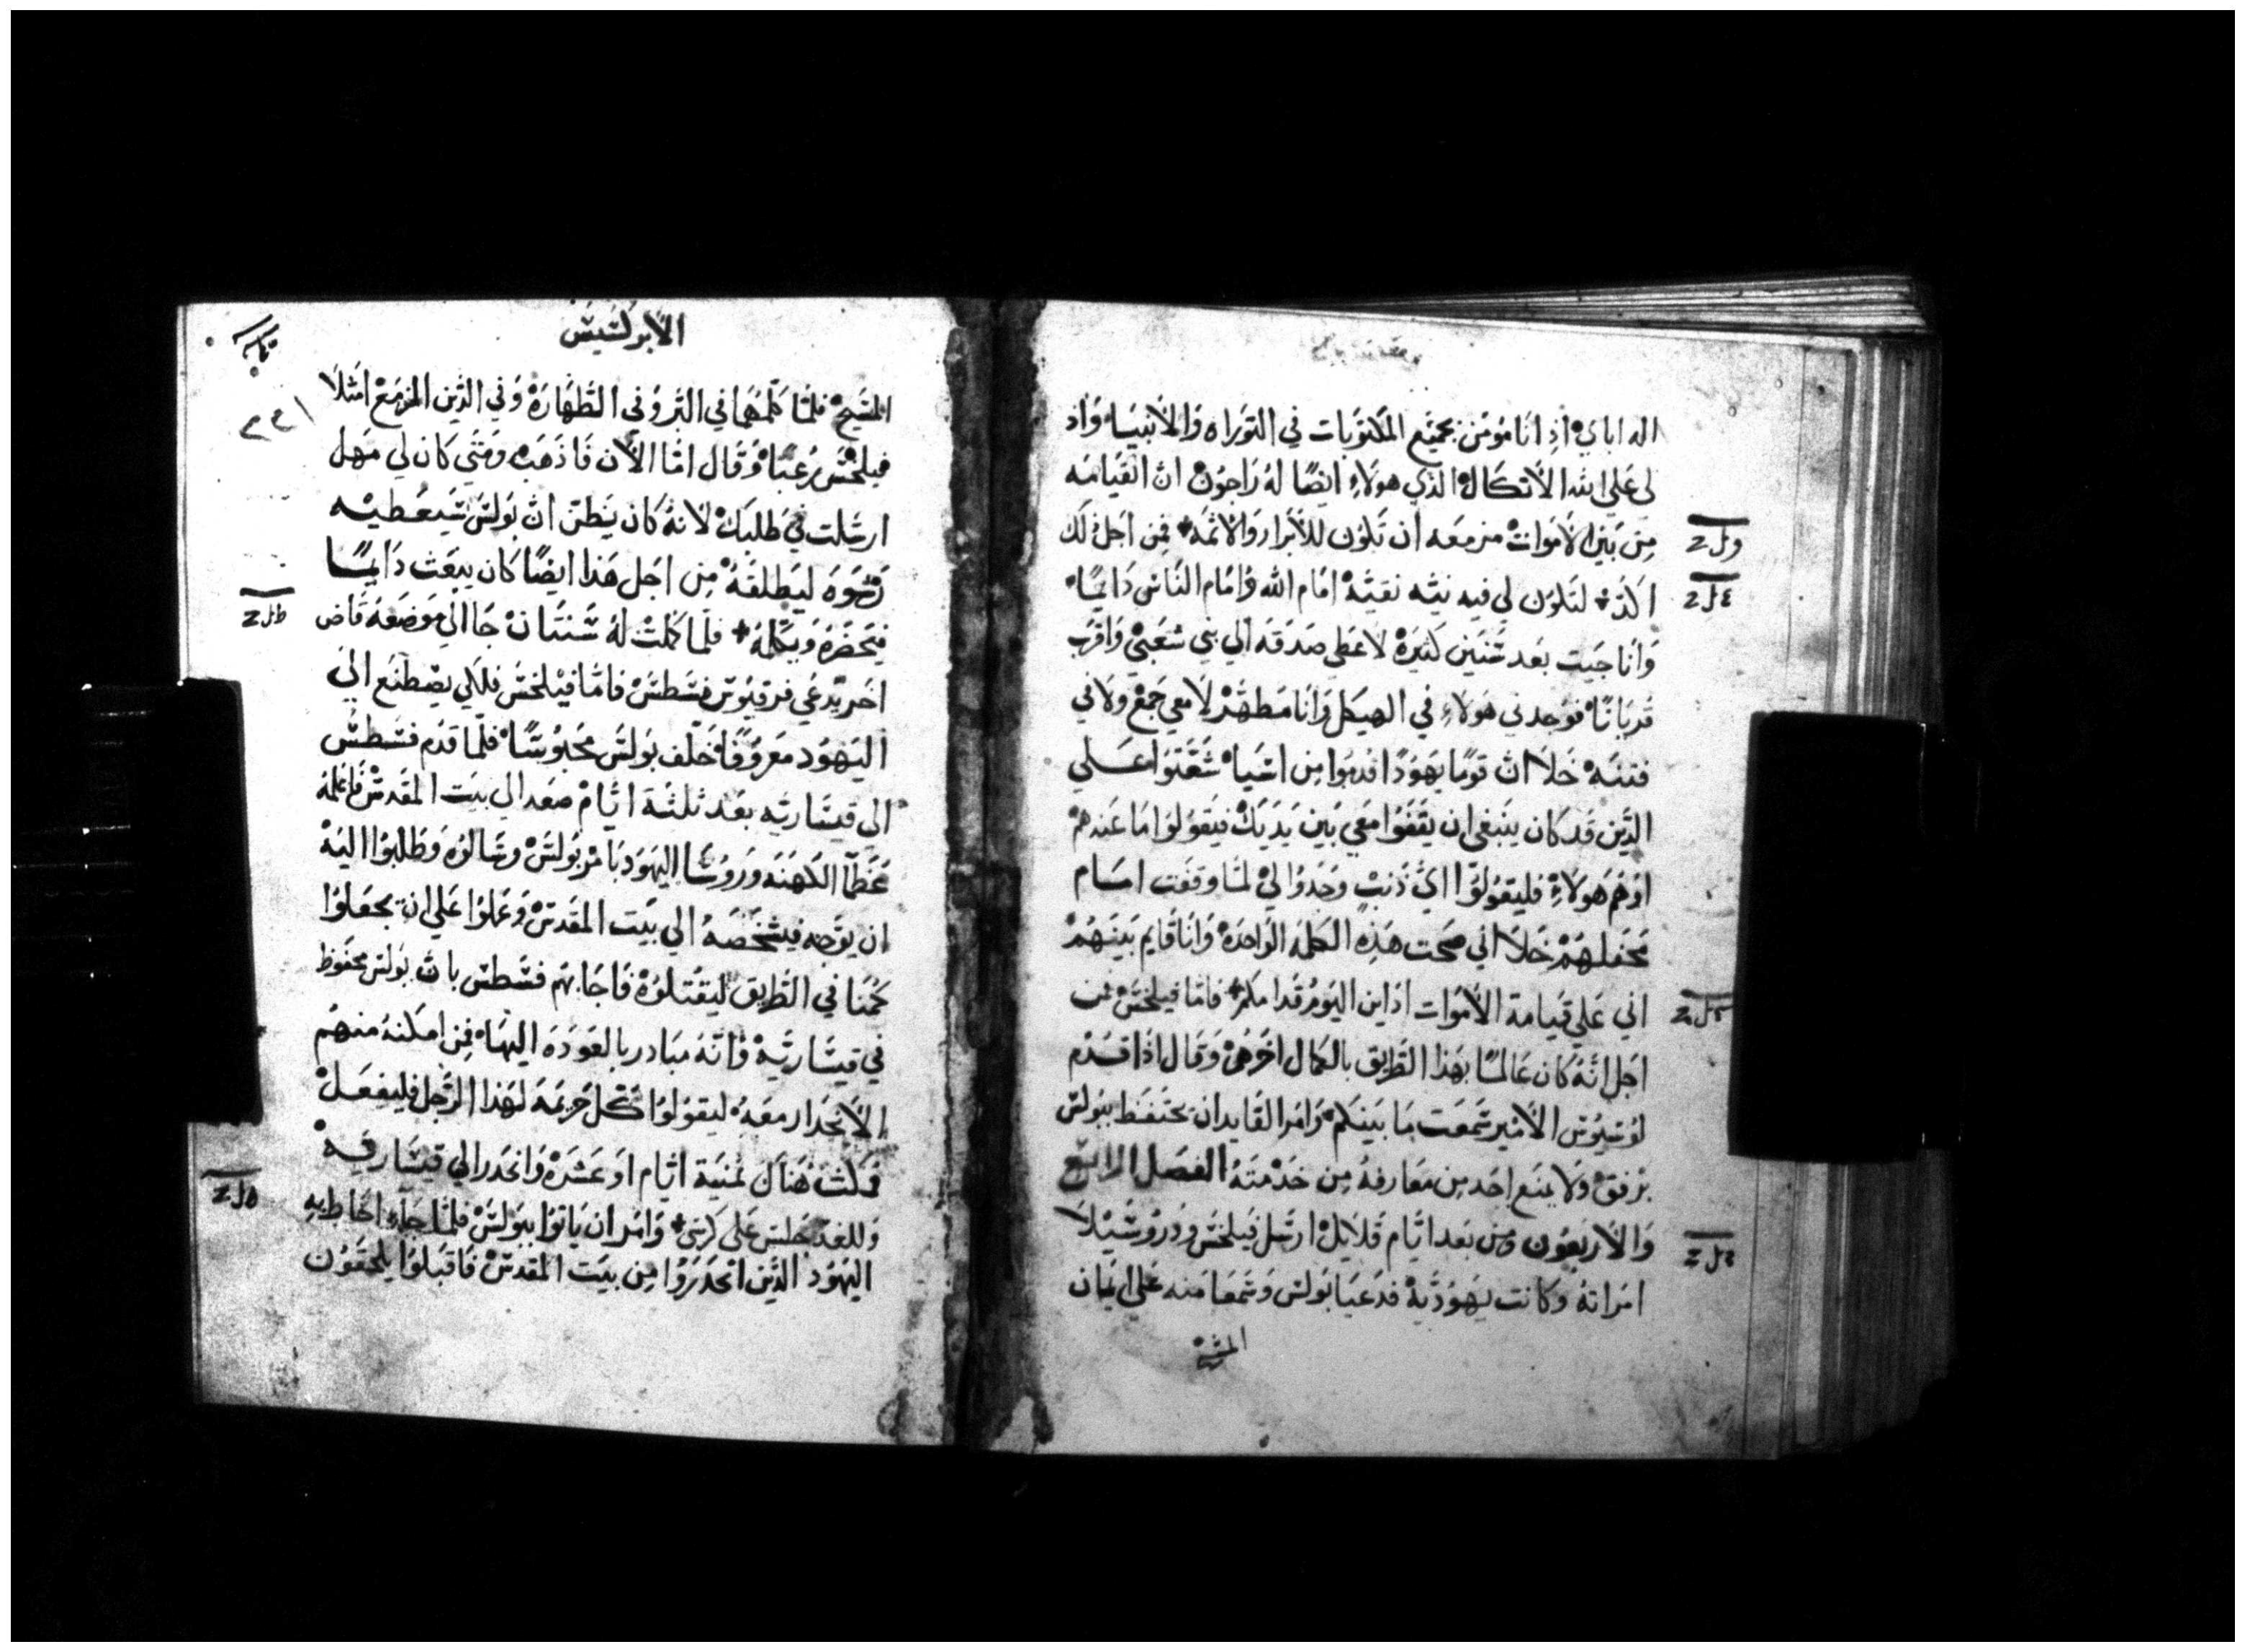 اله اباي اذ انا مُومن بجميع المكتوبات في التوراه والانبياء واذ
لي علي الله الاتكال الذي هولاءِ ايضًا له راجون ان القيامه
من بين الاموات مزمعه ان تكون للابرار والاثمه فمن اجل ذلك
اكد لتكون لي فيه نيّه نقيّه امام الله وامام الناس دايمًا
وانا جيت بعد سنين كثيره لاعطي صدقه الي بني شعبي واقرب
قربانًا فوجدني هولاءِ في الهيكل وانا مطهّر لا معي جمع ولا في
فتنه خلا ان قومًا يهودًا قدموا من اسيا شغّبوا علي
الذين قد كان ينبغي ان يقفوا معي بين يديك فيقولوا ما عندهم
او هم هولاءِ فليقولوا ايّ ذنب وجدوا لي لمّا وقفت امام
محفلهم خلا اني صحت هذه الكلمه الواحده وانا قايم بينهم
اني علي قيامة الاموات ادان اليوم قدامكم فامّا فيلخس من
اجل انّه كان عالمًا بهذا الطريق بالكمال اخرهم وقال اذا قدم
لوسيوس الامير سمعت ما بينكم وامر القايد ان يحتفظ ببولس
برفق ولا يمنع احد من معارفه من خدمته الفصل الرابع
والاربعون ومن بعد ايّام قلايل ارسل فيلخس ودروسيلا
امراته وكانت يهوديّة فدعيا بولس وسمعا منه علي ايمان
المسيح
الابركسيس
المسيح فلمّا كلمهما في البر وفي الطهارة وفي الدين المزمع امتلا
فيلخس رعبًا وقال امّا الان فاذهب ومتي كان لي مهل
ارسلت في طلبك لانه كان يظن ان بولس سيعطيه
رشوه ليطلقه من اجل هذا ايضًا كان يبعث دايمًا
فيحضره ويكلمه فلمّا كملت له سنتان جا الي موضعه قاض
اخر يدعي فرقيوس فسطس فامّا فيلخس فلكي يصطنع الي
اليهود معروفًا خلّف بولس محبوسًا فلمّا قدم فسطس
الي قيساريّه بعد ثلثة ايّام صعد الي بيت المقدس فاعلمه
عظما الكهنه وروسا اليهود بامر بولس وسالوه وطلبوا اليه
ان يوجه فيشخصه الي بيت المقدس وعملوا علي ان يجعلوا
كمنا في الطريق ليقتلوه فاجابهم فسطس بان بولس محفوظ
في قيساريّة وانّه مبادر بالعوده اليها فمن امكنه منهم
الانحدار معه ليقولوا كل جريمه لهذا الرجل فليفعل
فمكث هناك ثمنية ايّام او عشره وانحدر الي قيساريه
وللغد جلس علي كرسي وامر ان ياتوا ببولس فلمّا جآء احاط به
اليهود الذين انحدروا من بيت المقدس فاقبلوا يلحقون